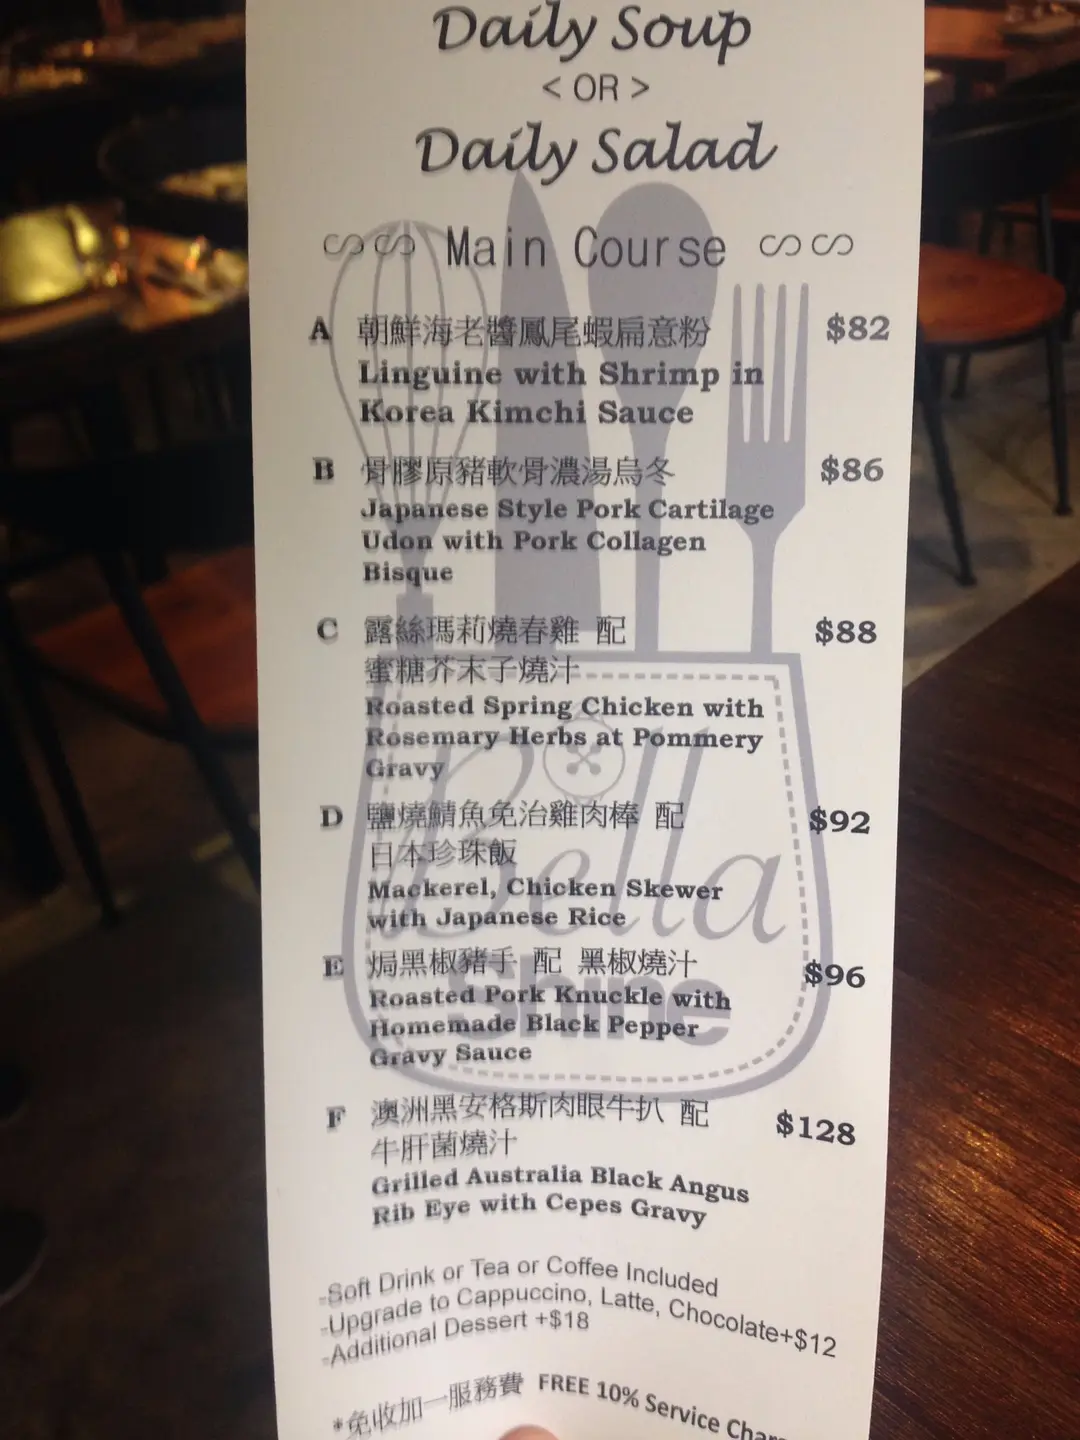 Daily Soup
< OR >
Daily Salad
Main Course
A 朝鮮海老醬鳳尾蝦扁意粉 $82
Linguine with Shrimp in
Korea Kimchi Sauce
B 骨膠原豬軟骨濃湯烏冬 $86
Japanese Style Pork Cartilage
Udon with Pork Collagen
Bisque
C 露絲瑪莉燒春雞 配 $88
蜜糖芥末子燒汁
Roasted Spring Chicken with
Rosemary Herbs at Pommery
Gravy
D 鹽燒鯖魚免治雞肉棒 配 $92
日本珍珠飯
Mackerel, Chicken Skewer
with Japanese Rice
E 焗黑椒豬手 配 黑椒燒汁 $96
Roasted Pork Knuckle with
Homemade Black Pepper
Gravy Sauce
F 澳洲黑安格斯肉眼牛扒 配 $128
牛肝菌燒汁
Grilled Australia Black Angus
Rib Eye with Cepes Gravy
Bella
Shine
-Soft Drink or Tea or Coffee Included
-Upgrade to Cappuccino, Latte, Chocolate+$12
-Additional Dessert +$18
*免收加一服務費 FREE 10% Service